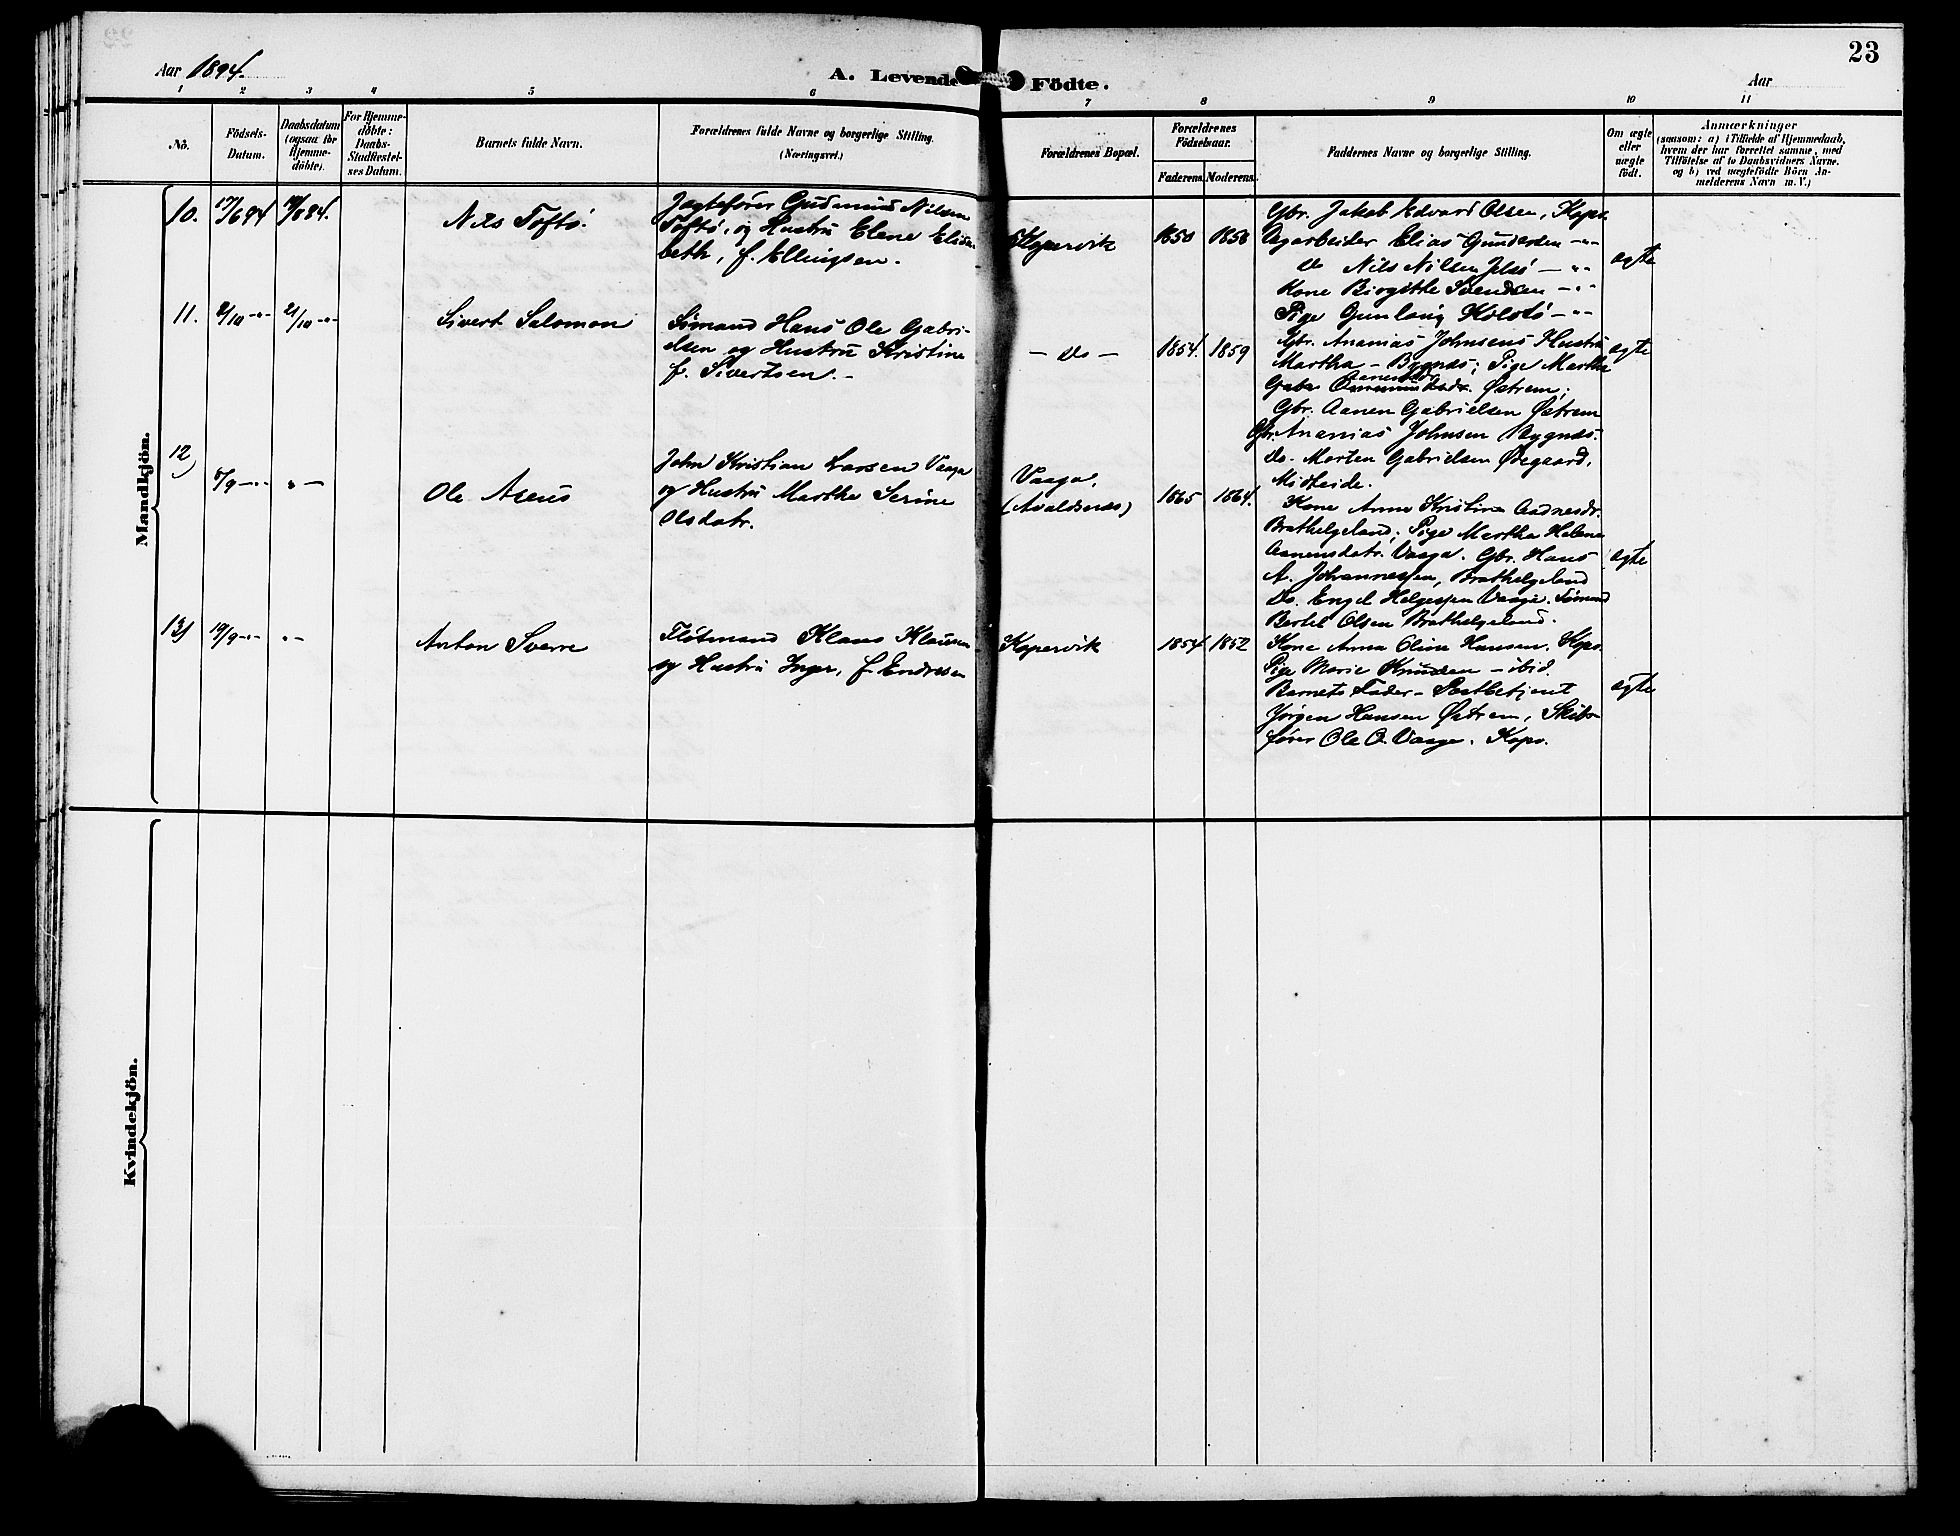 Aar 1894.
A. Levende Födte.
Aar
23
1 2 3 4 5 6 7 8 9 10 11
No.
Födsels-
Datum.
Daabsdatum
(ogsaa for
Hjemme-
döbte).
For Hjemme-
döbte:
Daabs-
Stadfæstel-
ses Datum.
Barnets fulde Navn.
Forældrenes fulde Navne og borgerlige Stilling.
(Næringsvei.)
Forældrenes Bopæl.
Forældrenes
Födselsaar.
Faderens. Moderens.
Faddernes Navne og borgerlige Stilling.
Om ægte
eller
uægte
født.
Anmærkninger
(saasom: a) i Tilfælde af Hjemmedaab,
hvem der har forrettet samme, med
Tilföielse af to Daabsvidners Navne.
og b) ved uægtefödte Börn An-
melderens Navn m. V.)
Mandkjön.
10.
17/6 94
19/8 94.
Nils Toftö.
Jagtefører Gudmund Nilsen
Toftö, og Hustru Elene Elisa
beth, f. Ellingsen.
Kopervik
1850
1858
Gbr. Jakob Edvard Olsen, Kopv.
Dagarbeider Elias Gundersen -"-
do Nils Nilsen Jelsö -"-
Kone Birgithe Svendsen -"-
Pige Gunlaug Kolstö -"-
ægte
11.
2/10 -"-
21/10 -"-
Sivert Salomon
Sömand Hans Ole Gabri-
elsen og Hustru Kristine
f. Sivertsen.-
- do -
1854.
1859
Gbr. Ananias Johnsens Hustru
Martha - Bygnæs; Pige Martha
Østrem;
Gbr. Aanen Gabrielsen Østrem
Gbr. Ananias Johnsen Bygnæs.
do. Morten Gabrielsen Ødegaard,
ægte
12)
5/9 -"-
" -
Ole Aseus
John Kristian Larsen Vaage
og Hustru Martha Serine
Olsdatr.
Vaage,
(Avaldsnæs)
1865
1864.
Kone Anna Kristine Aadnesdr.
Brathelgeland; Pige Martha Helene
Aanensdatr. Vaage. Gbr. Hans
A. Johannessen, Brathelgeland
Do. Engel Helgessen Vaage. Sömand
Bertel Olsen Brathelgeland.
ægte
13)
19/9 -"-
"-
Anton Sverre
Flötmand Klaus Klausen
og Hustru Inger, f. Endresen
Kopervik
1854
1852
Kone Anna Oline Hansen. Kopv.
Pige Marie Knudsen - ibid.
Barnets Fader - Postbetjent
Jörgen Hansen Østrem, Skibs-
förer Ole O. Vaage. Kopv.
ægte
Kvindekjön.